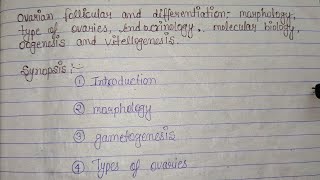 Ovarian follicular and differentiation:- morphology,
type of ovaries, endocrinology, molecular biology,
oogenesis and vitellogenesis.
Synopsis:-
① Introduction
② morphology
③ gametogenesis
④ Types of ovaries